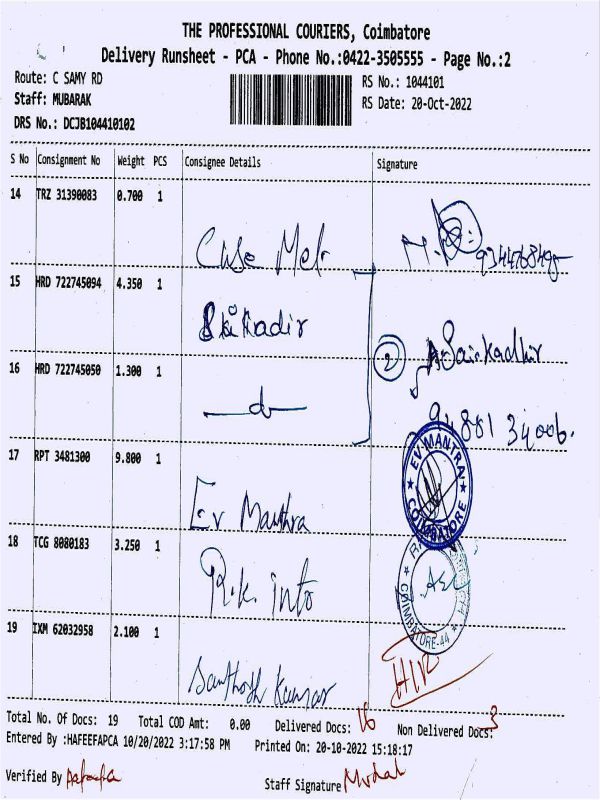 THE PROFESSIONAL COURIERS, Coimbatore
Delivery Runsheet - PCA - Phone No.:0422-3505555 - Page No.:2
Route: C SAMY RD
RS No.: 1044101
Staff: MUBARAK
RS Date: 20-Oct-2022
DRS No.: DCJB104410102
S No Consignment No Weight PCS Consignee Details Signature
14 TRZ 31390083 0.700 1
15 HRD 722745094 4.350 1
Kadir
Sainkadhir
16 HRD 722745050 1.300 1
2
94881 34006.
17 RPT 3481300 9.800 1
Ev Manthra
EV MANTRA
COIMBATORE
18 TCG 8080183 3.250 1
R.K. Info
COIMBATORE-44
19 IXM 62032958 2.100 1
Santhosh Kumar
Total No. Of Docs: 19 Total COD Amt: 0.00 Delivered Docs: 16 Non Delivered Docs: 3
Entered By :HAFEEFAPCA 10/20/2022 3:17:58 PM Printed On: 20-10-2022 15:18:17
Verified By
Staff Signature